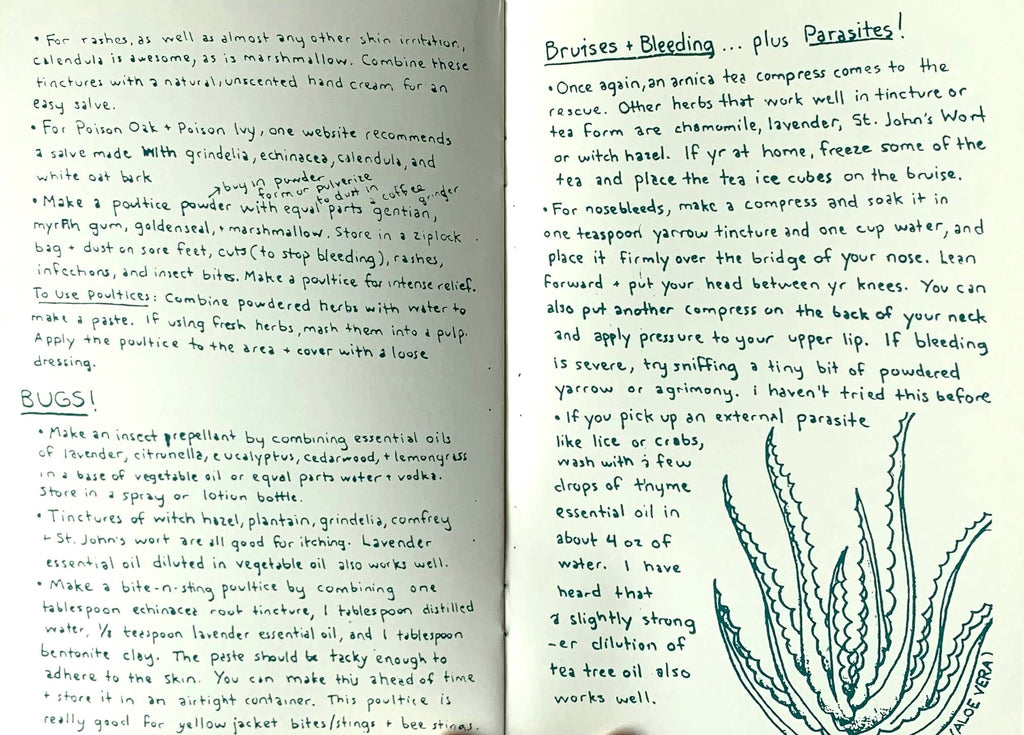 • For rashes, as well as almost any other skin irritation,
calendula is awesome, as is marshmallow. Combine these
tinctures with a natural, unscented hand cream for an
easy salve.
• For Poison Oak + Poison Ivy, one website recommends
a salve made with grindelia, echinacea, calendula, and
white oat bark
↗ buy in powder
form or pulverize
to dust in a coffee grinder
• Make a poultice powder with equal parts gentian,
myrrh gum, goldenseal, + marshmallow. Store in a ziplock
bag + dust on sore feet, cuts (to stop bleeding), rashes,
infections, and insect bites. Make a poultice for intense relief.
To Use Poultices: Combine powdered herbs with water to
make a paste. If using fresh herbs, mash them into a pulp.
Apply the poultice to the area + cover with a loose
dressing.
BUGS!
• Make an insect repellant by combining essential oils
of lavender, citrunella, eucalyptus, cedarwood, + lemongrass
in a base of vegetable oil or equal parts water + vodka.
Store in a spray or lotion bottle.
• Tinctures of witch hazel, plantain, grindelia, comfrey
+ St. John's wort are all good for itching. Lavender
essential oil diluted in vegetable oil also works well.
• Make a bite-n-sting poultice by combining one
tablespoon echinacea root tincture, 1 tablespoon distilled
water, 1/8 teaspoon lavender essential oil, and 1 tablespoon
bentonite clay. The paste should be tacky enough to
adhere to the skin. You can make this ahead of time
+ store it in an airtight container. This poultice is
really good for yellow jacket bites/stings + bee stings.
Bruises + Bleeding... plus Parasites!
• Once again, an arnica tea compress comes to the
rescue. Other herbs that work well in tincture or
tea form are chamomile, lavender, St. John's Wort
or witch hazel. If yr at home, freeze some of the
tea and place the tea ice cubes on the bruise.
• For nosebleeds, make a compress and soak it in
one teaspoon yarrow tincture and one cup water, and
place it firmly over the bridge of your nose. Lean
forward + put your head between yr knees. You can
also put another compress on the back of your neck
and apply pressure to your upper lip. If bleeding
is severe, try sniffing a tiny bit of powdered
yarrow or agrimony. i haven't tried this before
• If you pick up an external parasite
like lice or crabs,
wash with a few
drops of thyme
essential oil in
about 4 oz of
water. I have
heard that
a slightly strong
-er dilution of
tea tree oil also
works well.
(ALOE VERA)